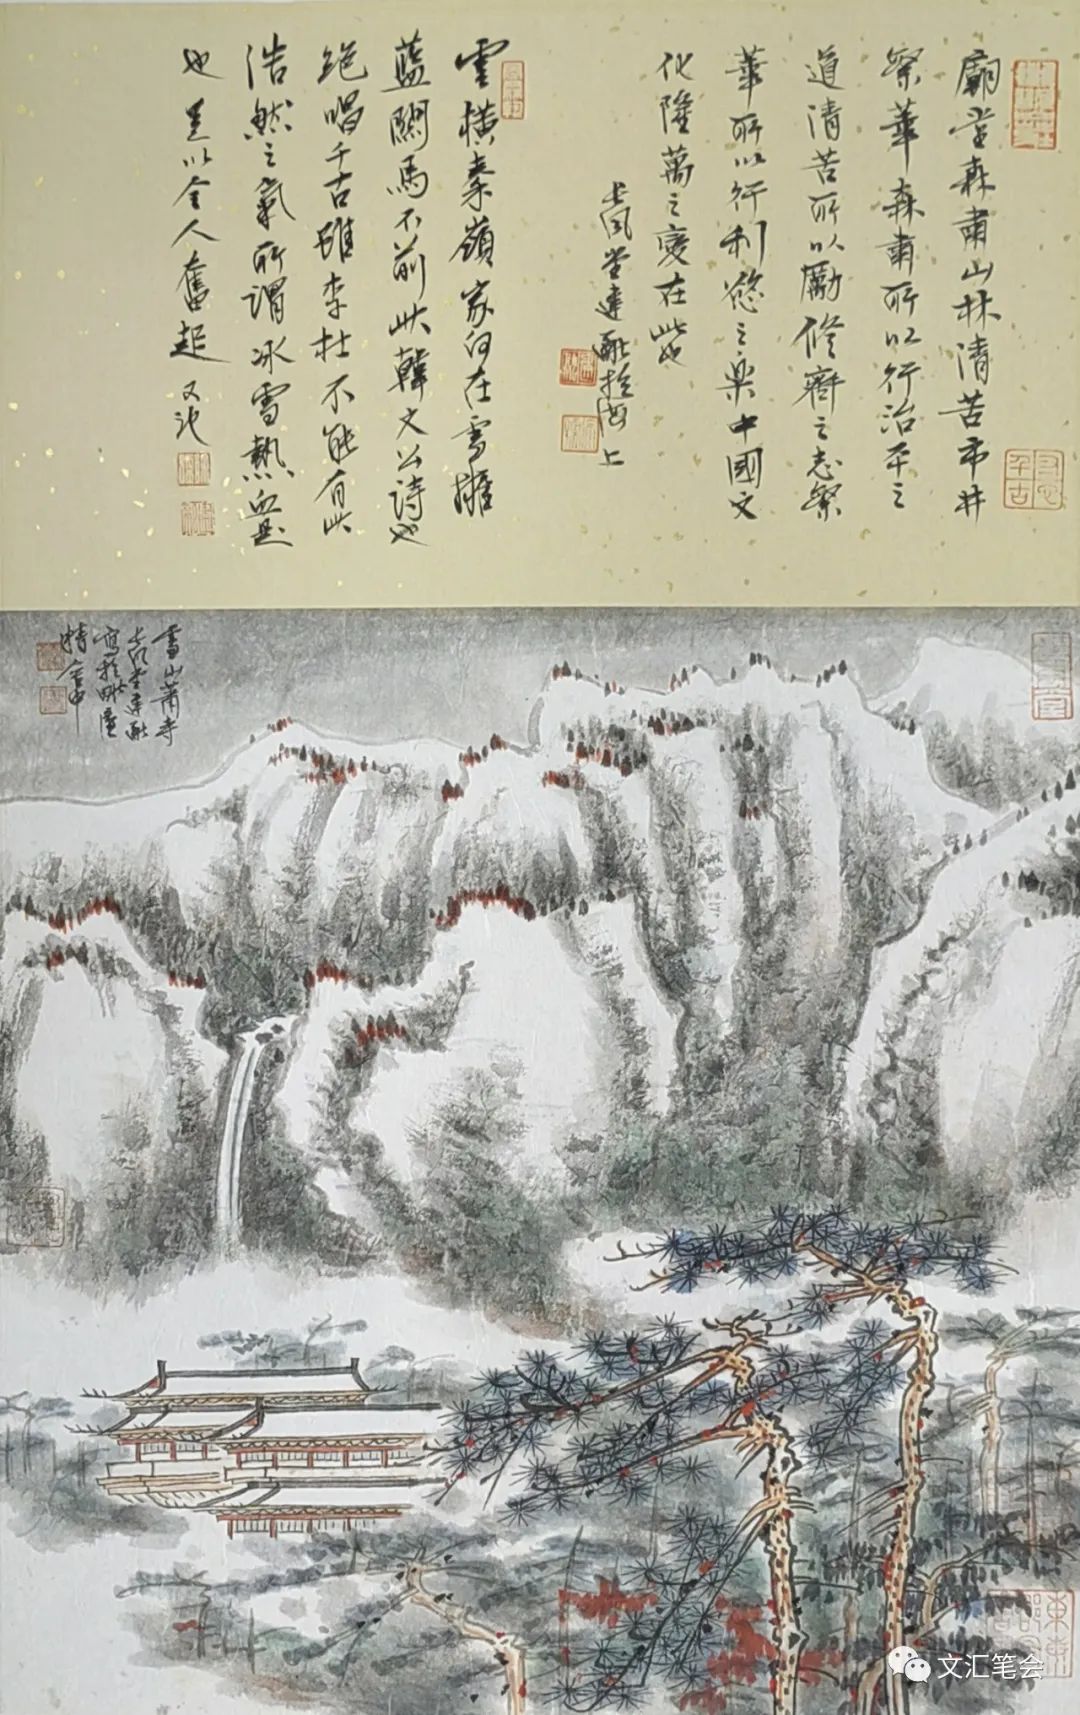 廟堂森肅山林清苦市井
繁華森肅所以行治平之
道清苦所以勵修齊之志繁
華所以行利慾之樂中國文
化隆萬之變在此也
長風堂建融於海上
雲橫秦嶺家何在雪擁
藍關馬不前此韓文公詩也
絕唱千古雖李杜不能有此
浩然之氣所謂冰雪熱血是
也足以令人奮起 又記
雪山蕭寺
長風堂建融
寫於毗廬
精舍中
文汇笔会